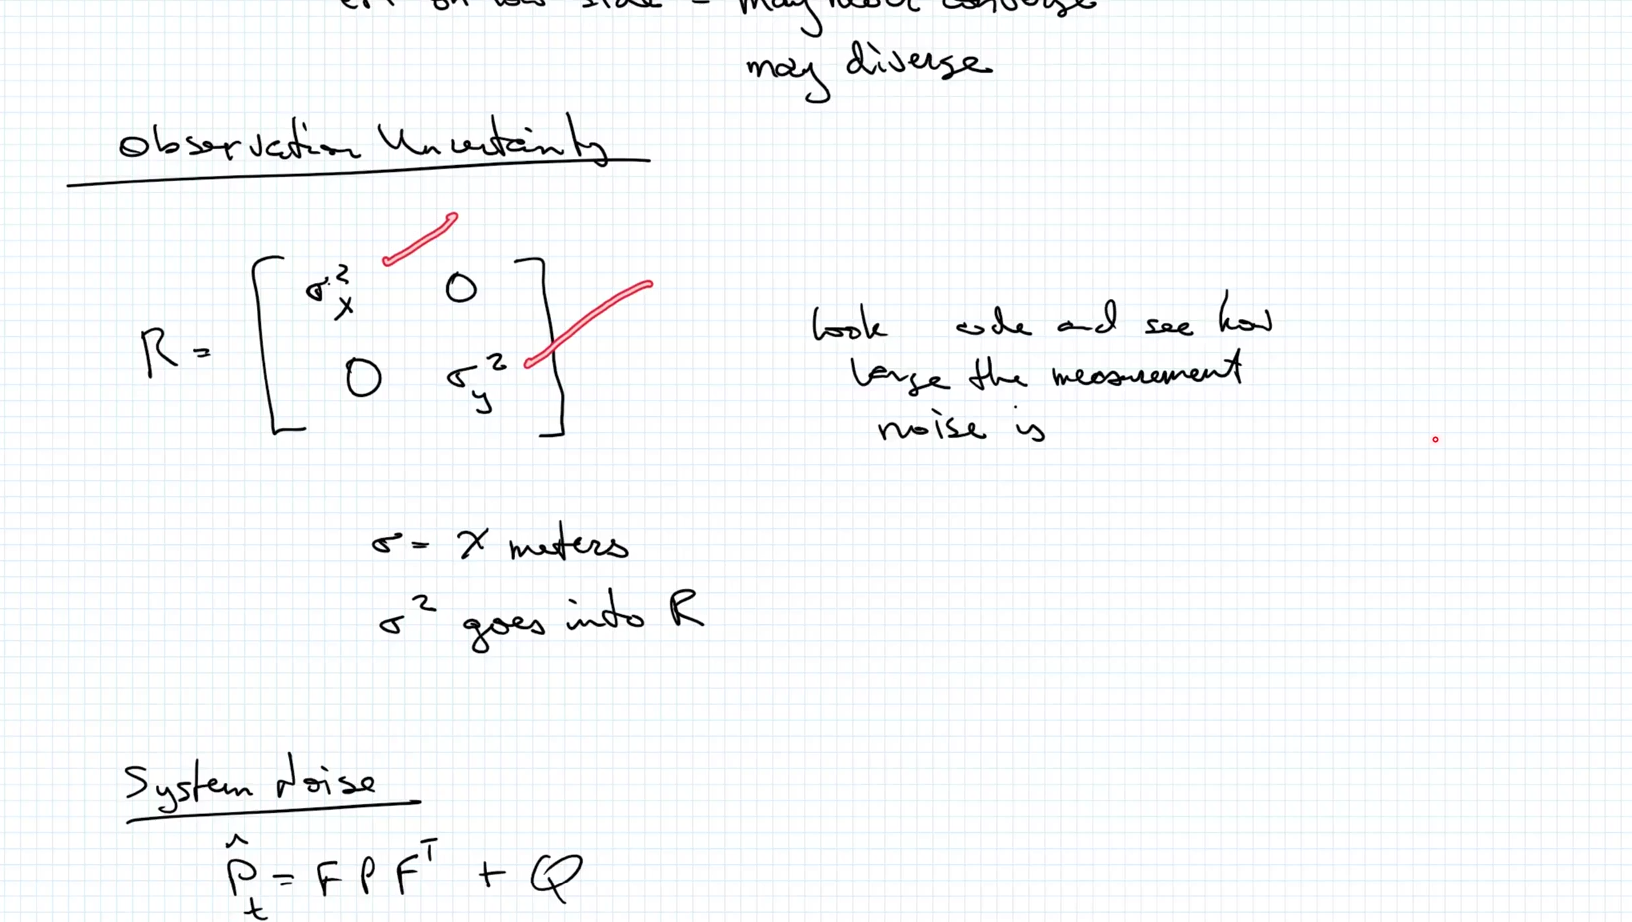 may never converge
may diverge
Observation Uncertainty
R = [ σ²ₓ 0
0 σ²ᵧ ]
Look code and see how
large the measurement
noise is
σ = x meters
σ² goes into R
System Noise
P̂ₜ = F P Fᵀ + Q